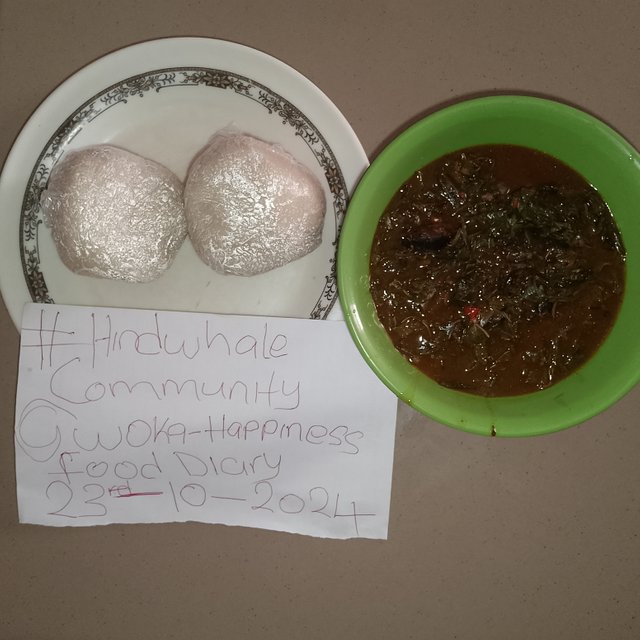 #Hindwhale
Community
@woka-Happiness
food Diary
23rd-10-2024